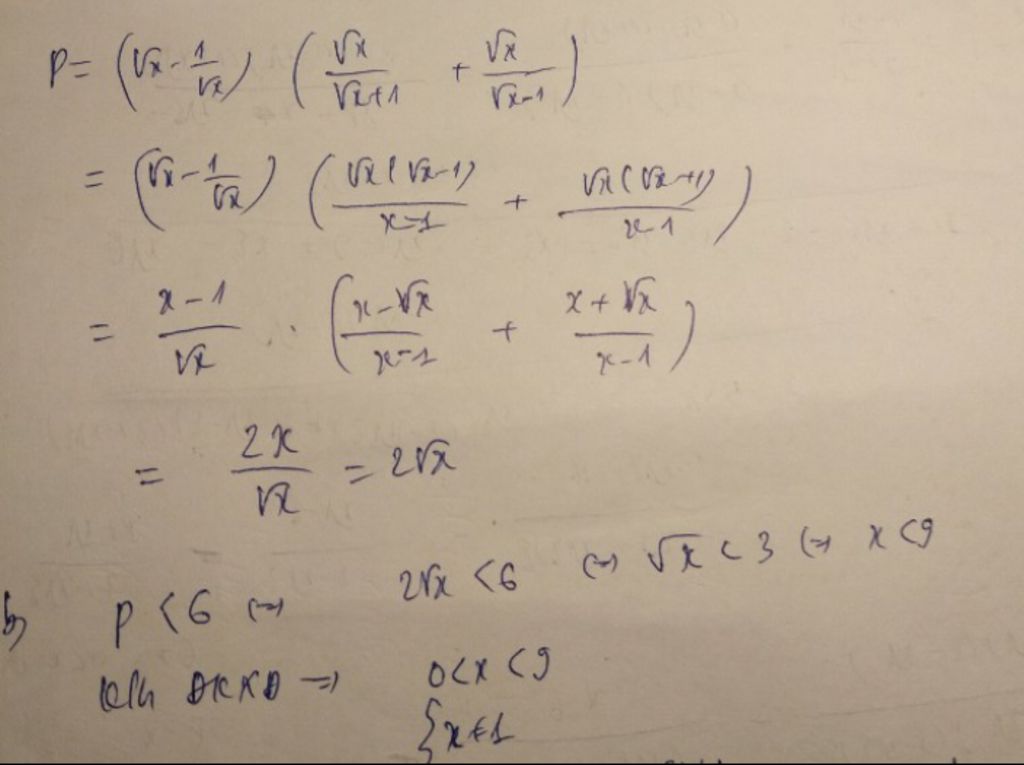 P = (√x - 1/√x) (√x/(√x+1) + √x/(√x-1))
= (√x - 1/√x) (√x(√x-1)/(x-1) + √x(√x+1)/(x-1))
= (x-1)/√x · ((x-√x)/(x-1) + (x+√x)/(x-1))
= 2x/√x = 2√x
b, P < 6 ⇔ 2√x < 6 ⇔ √x < 3 ⇔ x < 9
ĐKXĐ ⇒ 0 < x < 9
{ x ≠ 1